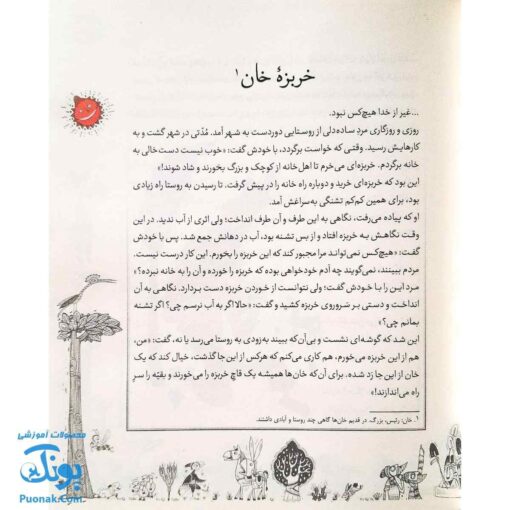 خربزهٔ خان¹
...غیر از خدا هیچ‌کس نبود.
روزی و روزگاری مردِ ساده‌دلی از روستایی دوردست به شهر آمد. مُدّتی در شهر گشت و به
کارهایش رسید. وقتی که خواست برگردد، با خودش گفت: «خوب نیست دست خالی به
خانه برگردم. خربزه‌ای می‌خرم تا اهل‌خانه از کوچک و بزرگ بخورند و شاد شوند!»
این بود که خربزه‌ای خرید و دوباره راه خانه را در پیش گرفت. تا رسیدن به روستا راه زیادی
بود، برای همین کم‌کم تشنگی به‌سراغش آمد.
او که پیاده می‌رفت، نگاهی به این طرف و آن طرف انداخت؛ ولی اثری از آب ندید. در این
وقت نگاهش به خربزه افتاد و از بس تشنه بود، آب در دهانش جمع شد. پس با خودش
گفت: «هیچ‌کس نمی‌تواند مرا مجبور کند که این خربزه را بخورم. این کار درست نیست.
مردم ببینند، نمی‌گویند چه آدم خودخواهی بوده که خربزه را خورده و آن را به خانه نبرده؟»
مرد این را با خودش گفت؛ ولی نتوانست از خوردن خربزه دست بردارد. نگاهی به آن
انداخت و دستی بر سَروروی خربزه کشید و گفت: «حالا اگر به آب نرسم چی؟ اگر تشنه
بمانم چی؟»
این شد که گوشه‌ای نشست و بی‌آن‌که ببیند به‌زودی به روستا می‌رسد یا نه، گفت: «من،
هم از این خربزه می‌خورم، هم کاری می‌کنم که هرکس از این‌جا گذشت، خیال کند که یک
خان از این‌جا رد شده. برای آن‌که خان‌ها همیشه یک قاچ خربزه را می‌خورند و بقیّه را سرِ
راه می‌اندازند!»
۱. خان: رئیس، بزرگ. در قدیم خان‌ها گاهی چند روستا و آبادی داشتند.
محصولات آموزشی
پونک
Puonak.Com